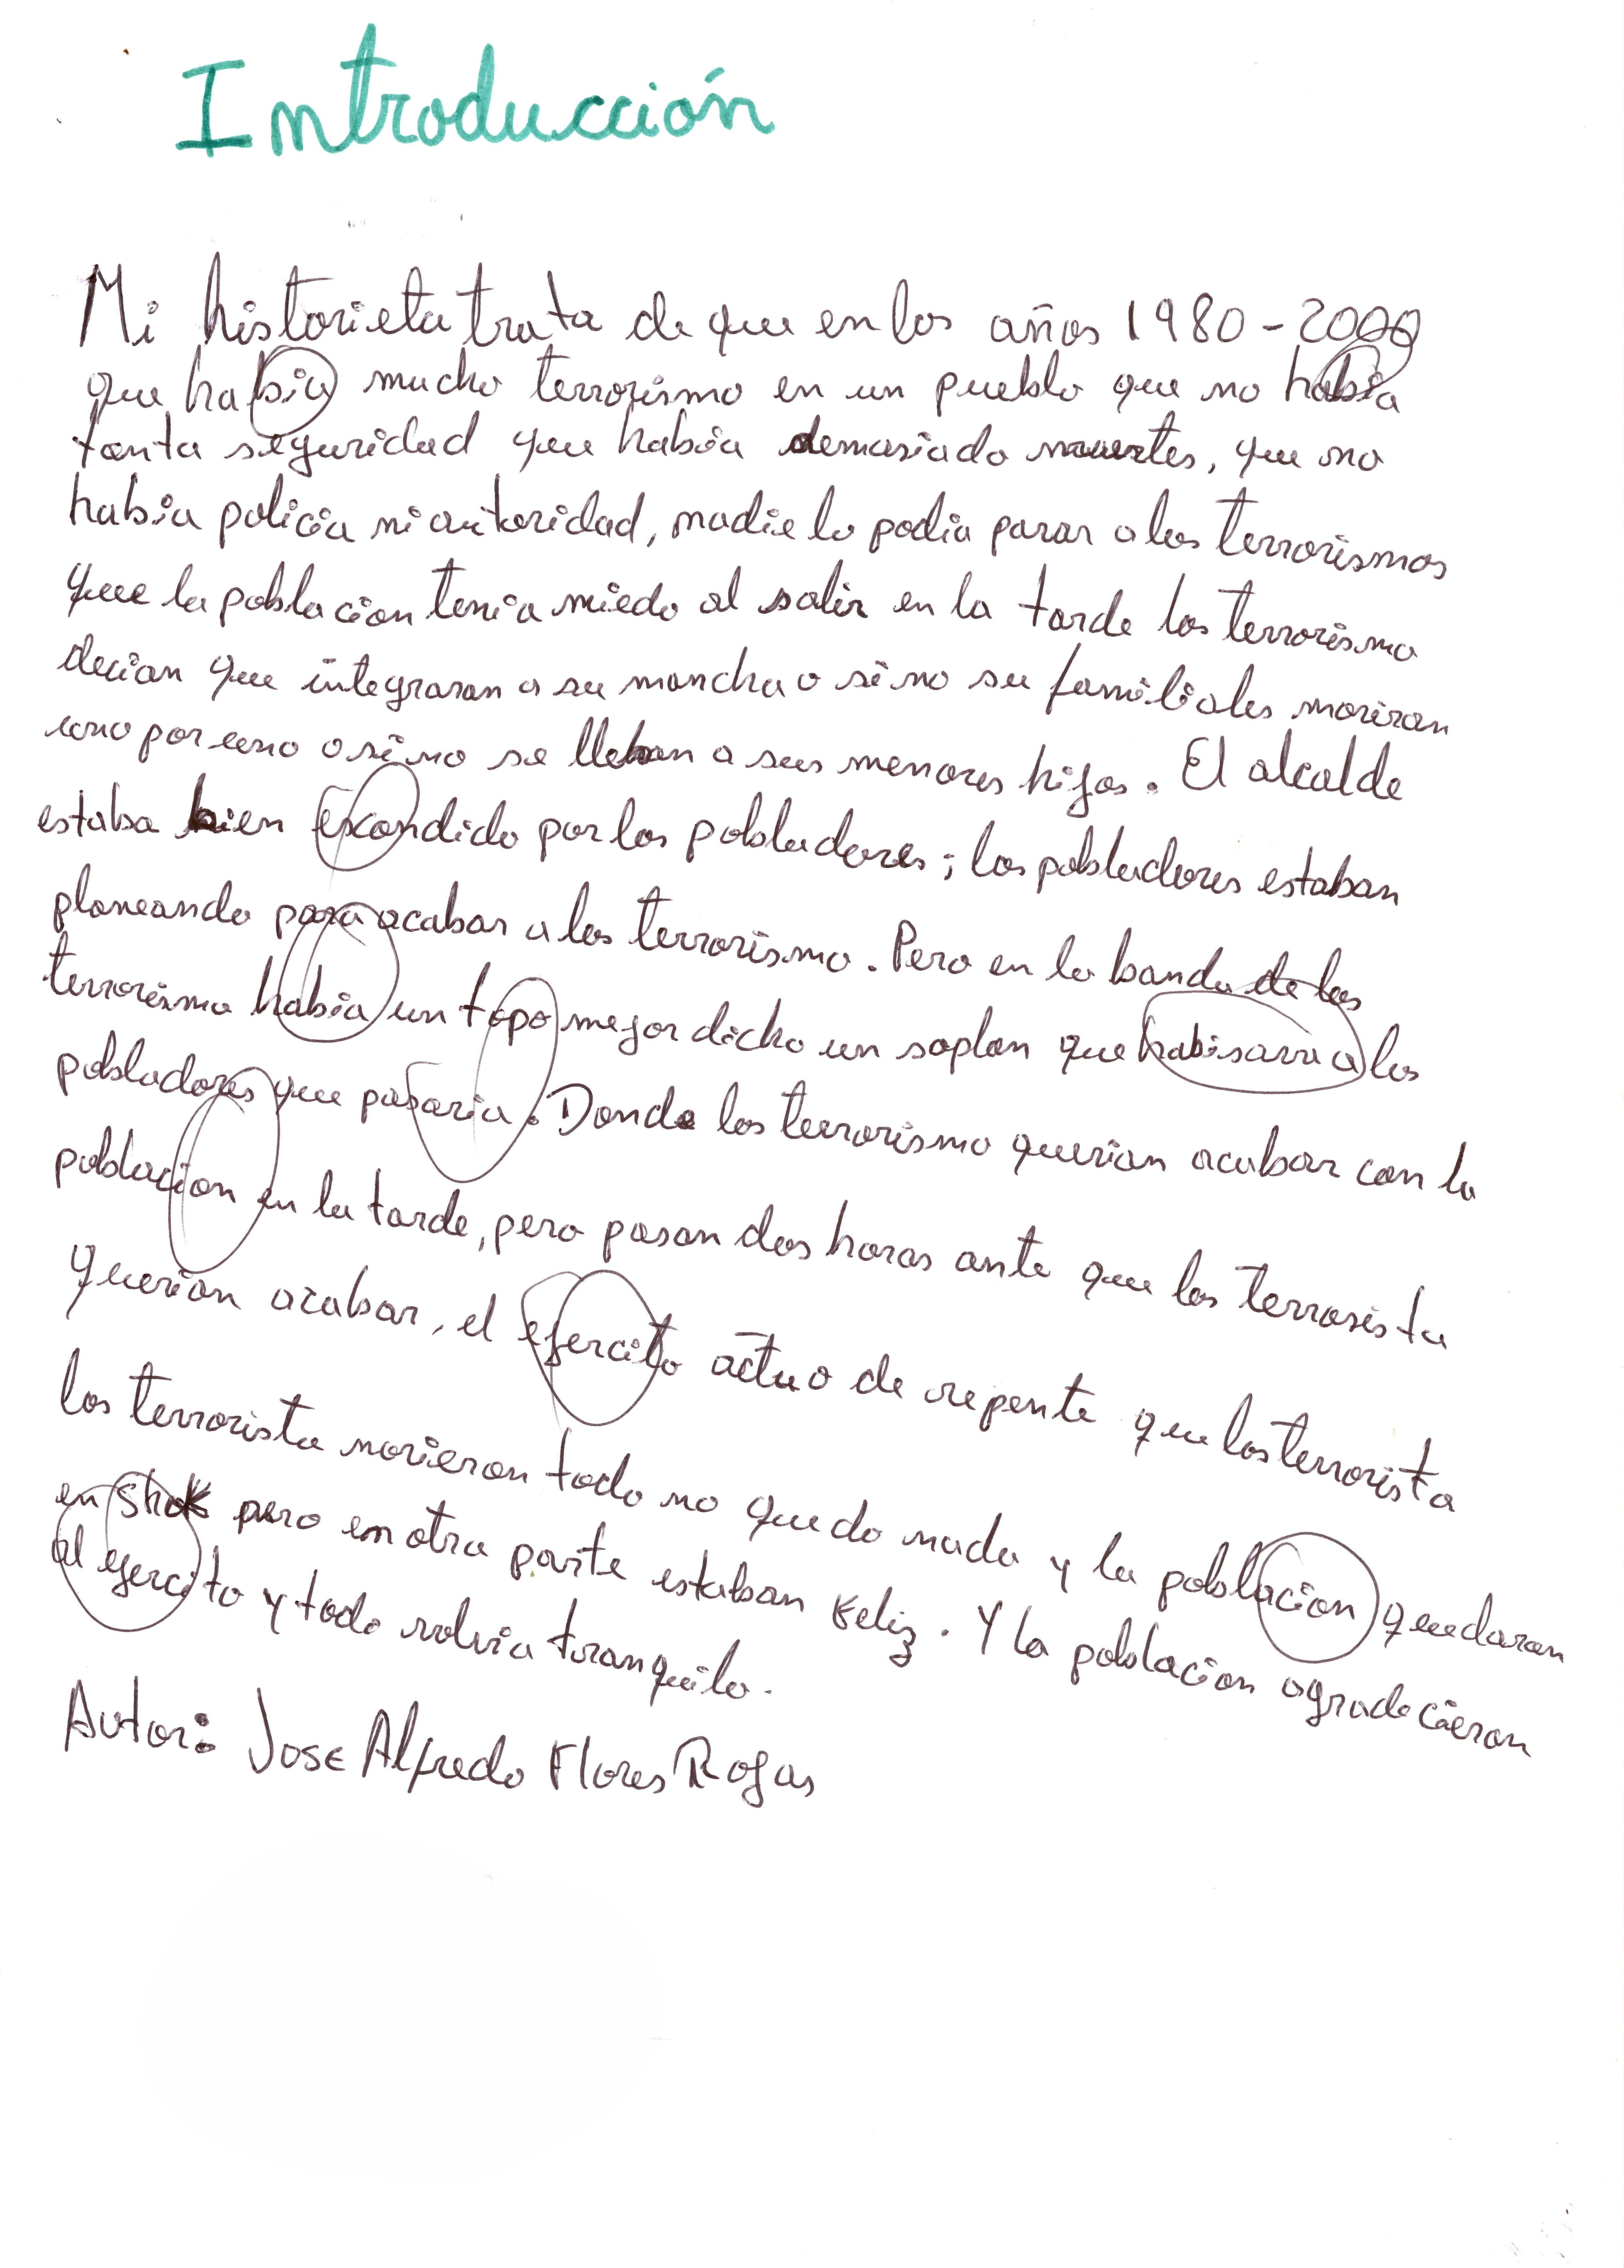 Introducción
Mi historieta trata de que en los años 1980-2000
que habia mucho terrorismo en un pueblo que no habia
tanta seguridad que habia demasiado muertes, que no
habia policia ni autoridad, nadie lo podia parar a los terrorismos
que la poblacion tenia miedo al salir en la tarde los terrorismo
decian que integraran a su mancha o si no su familiales moriran
uno por uno o si no se lleban a sus menores hijos. El alcalde
estaba bien escondido por los pobladores; los pobladores estaban
planeando para acabar a los terrorismo. Pero en la banda de los
terrorismo habia un topo mejor dicho un soplon que habisara a los
pobladores que pasaria. Donde los terrorismo querian acabar con la
poblacion en la tarde, pero pasan dos horas ante que los terrosista
querian acabar, el ejercito actuo de repente que los terrorista
los terrorista morieron todo no quedo nada y la poblacion quedaran
en shok pero en otra parte estaban Feliz. Y la poblacion agradecieron
al ejercito y todo volvia tranquilo.
Autor: Jose Alfredo Flores Rojas